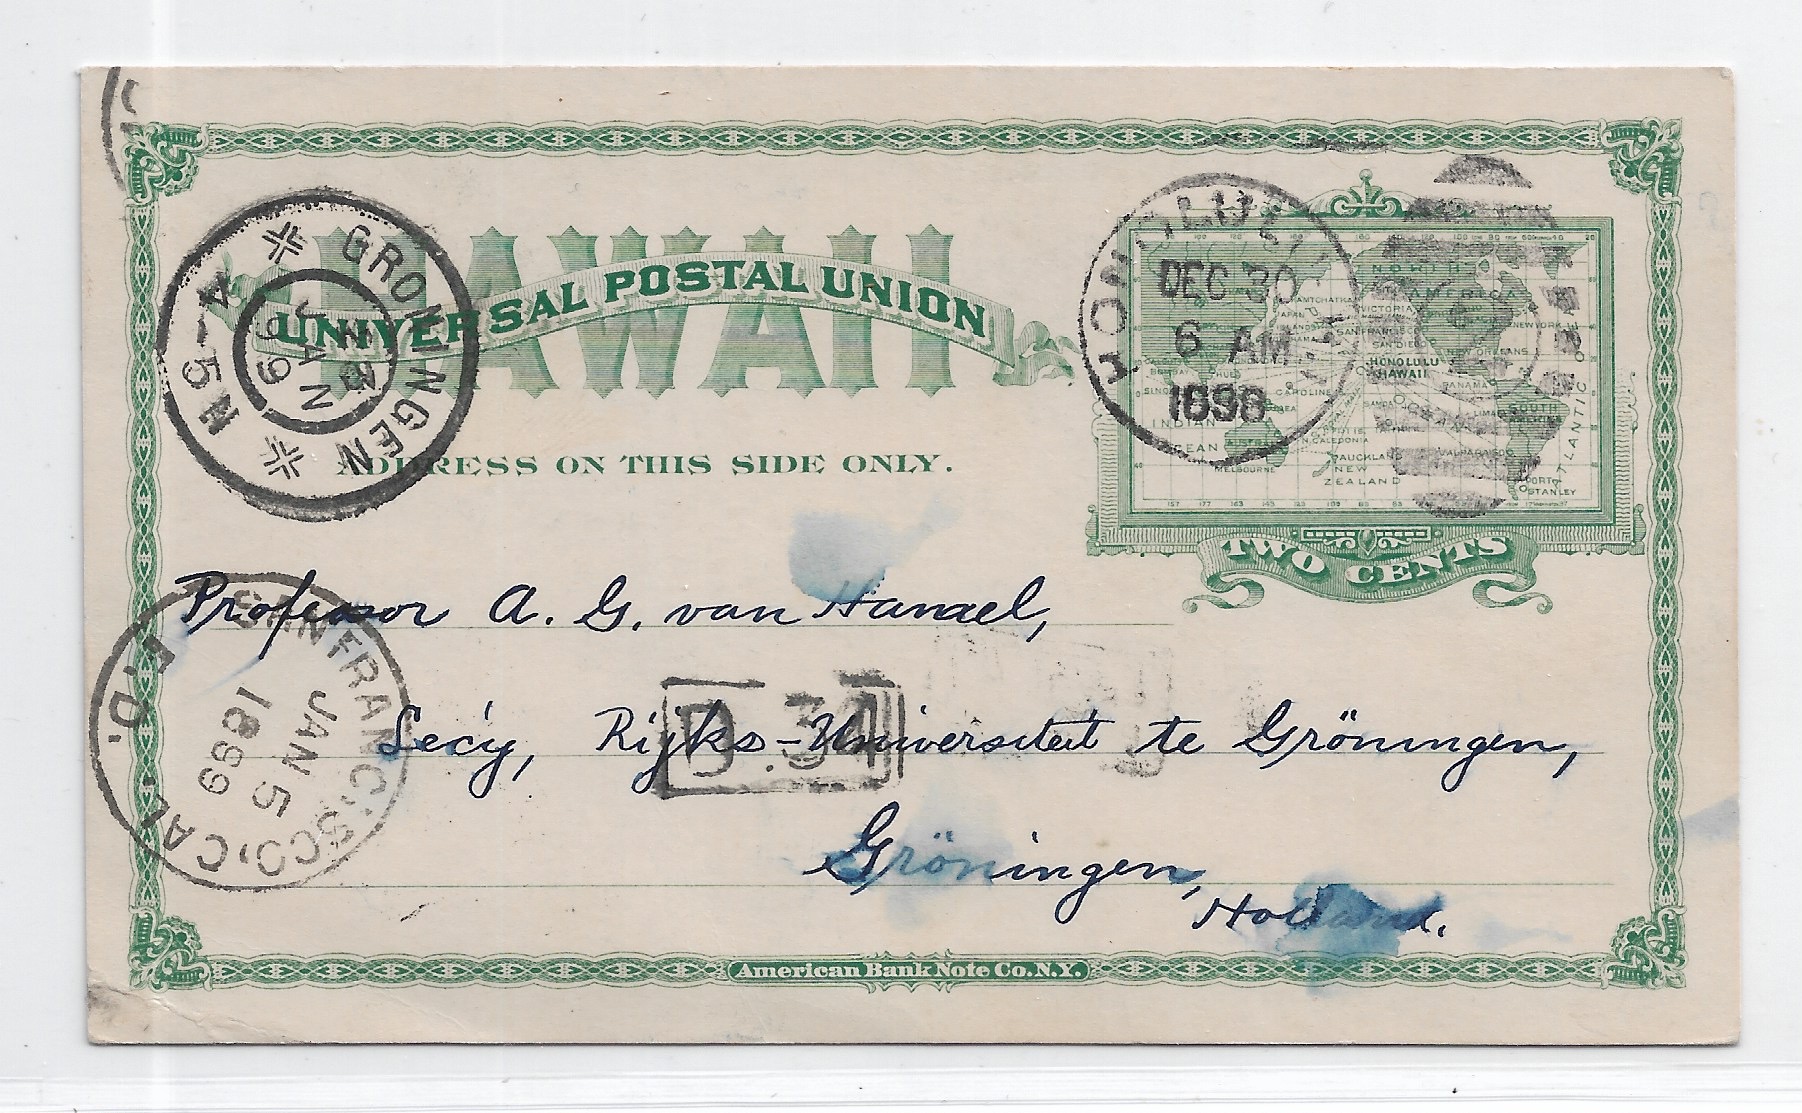 HAWAII
UNIVERSAL POSTAL UNION
ADDRESS ON THIS SIDE ONLY.
GRONINGEN
JAN
99
4-5 N
HONOLULU
DEC 30
6 AM
1898
NORTH
VICTORIA
SAN FRANCISCO
SAN DIEGO
NEW YORK
HONOLULU
HAWAII
PANAMA
INDIAN
OCEAN
SOUTH
ATLANTIC
MELBOURNE
AUCKLAND
NEW
ZEALAND
VALPARAISO
PORT
STANLEY
TWO CENTS
Professor A. G. van Hamel,
Secy, Rijks-Universiteit te Gröningen,
Gröningen,
Holland.
D.34
SAN FRANCISCO, CAL.
F.D.
JAN 5
1899
American Bank Note Co. N.Y.